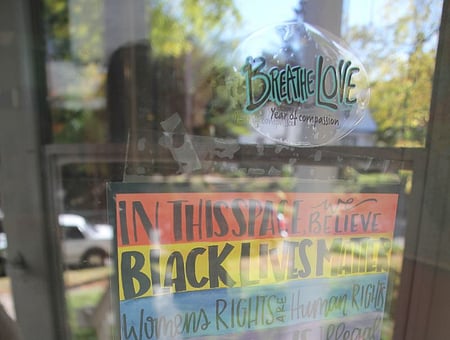 BREATHE LOVE
Year of compassion
IN THIS SPACE, we BELIEVE
BLACK LIVES MATTER
Womens RIGHTS ARE Human RIGHTS
IS illegal